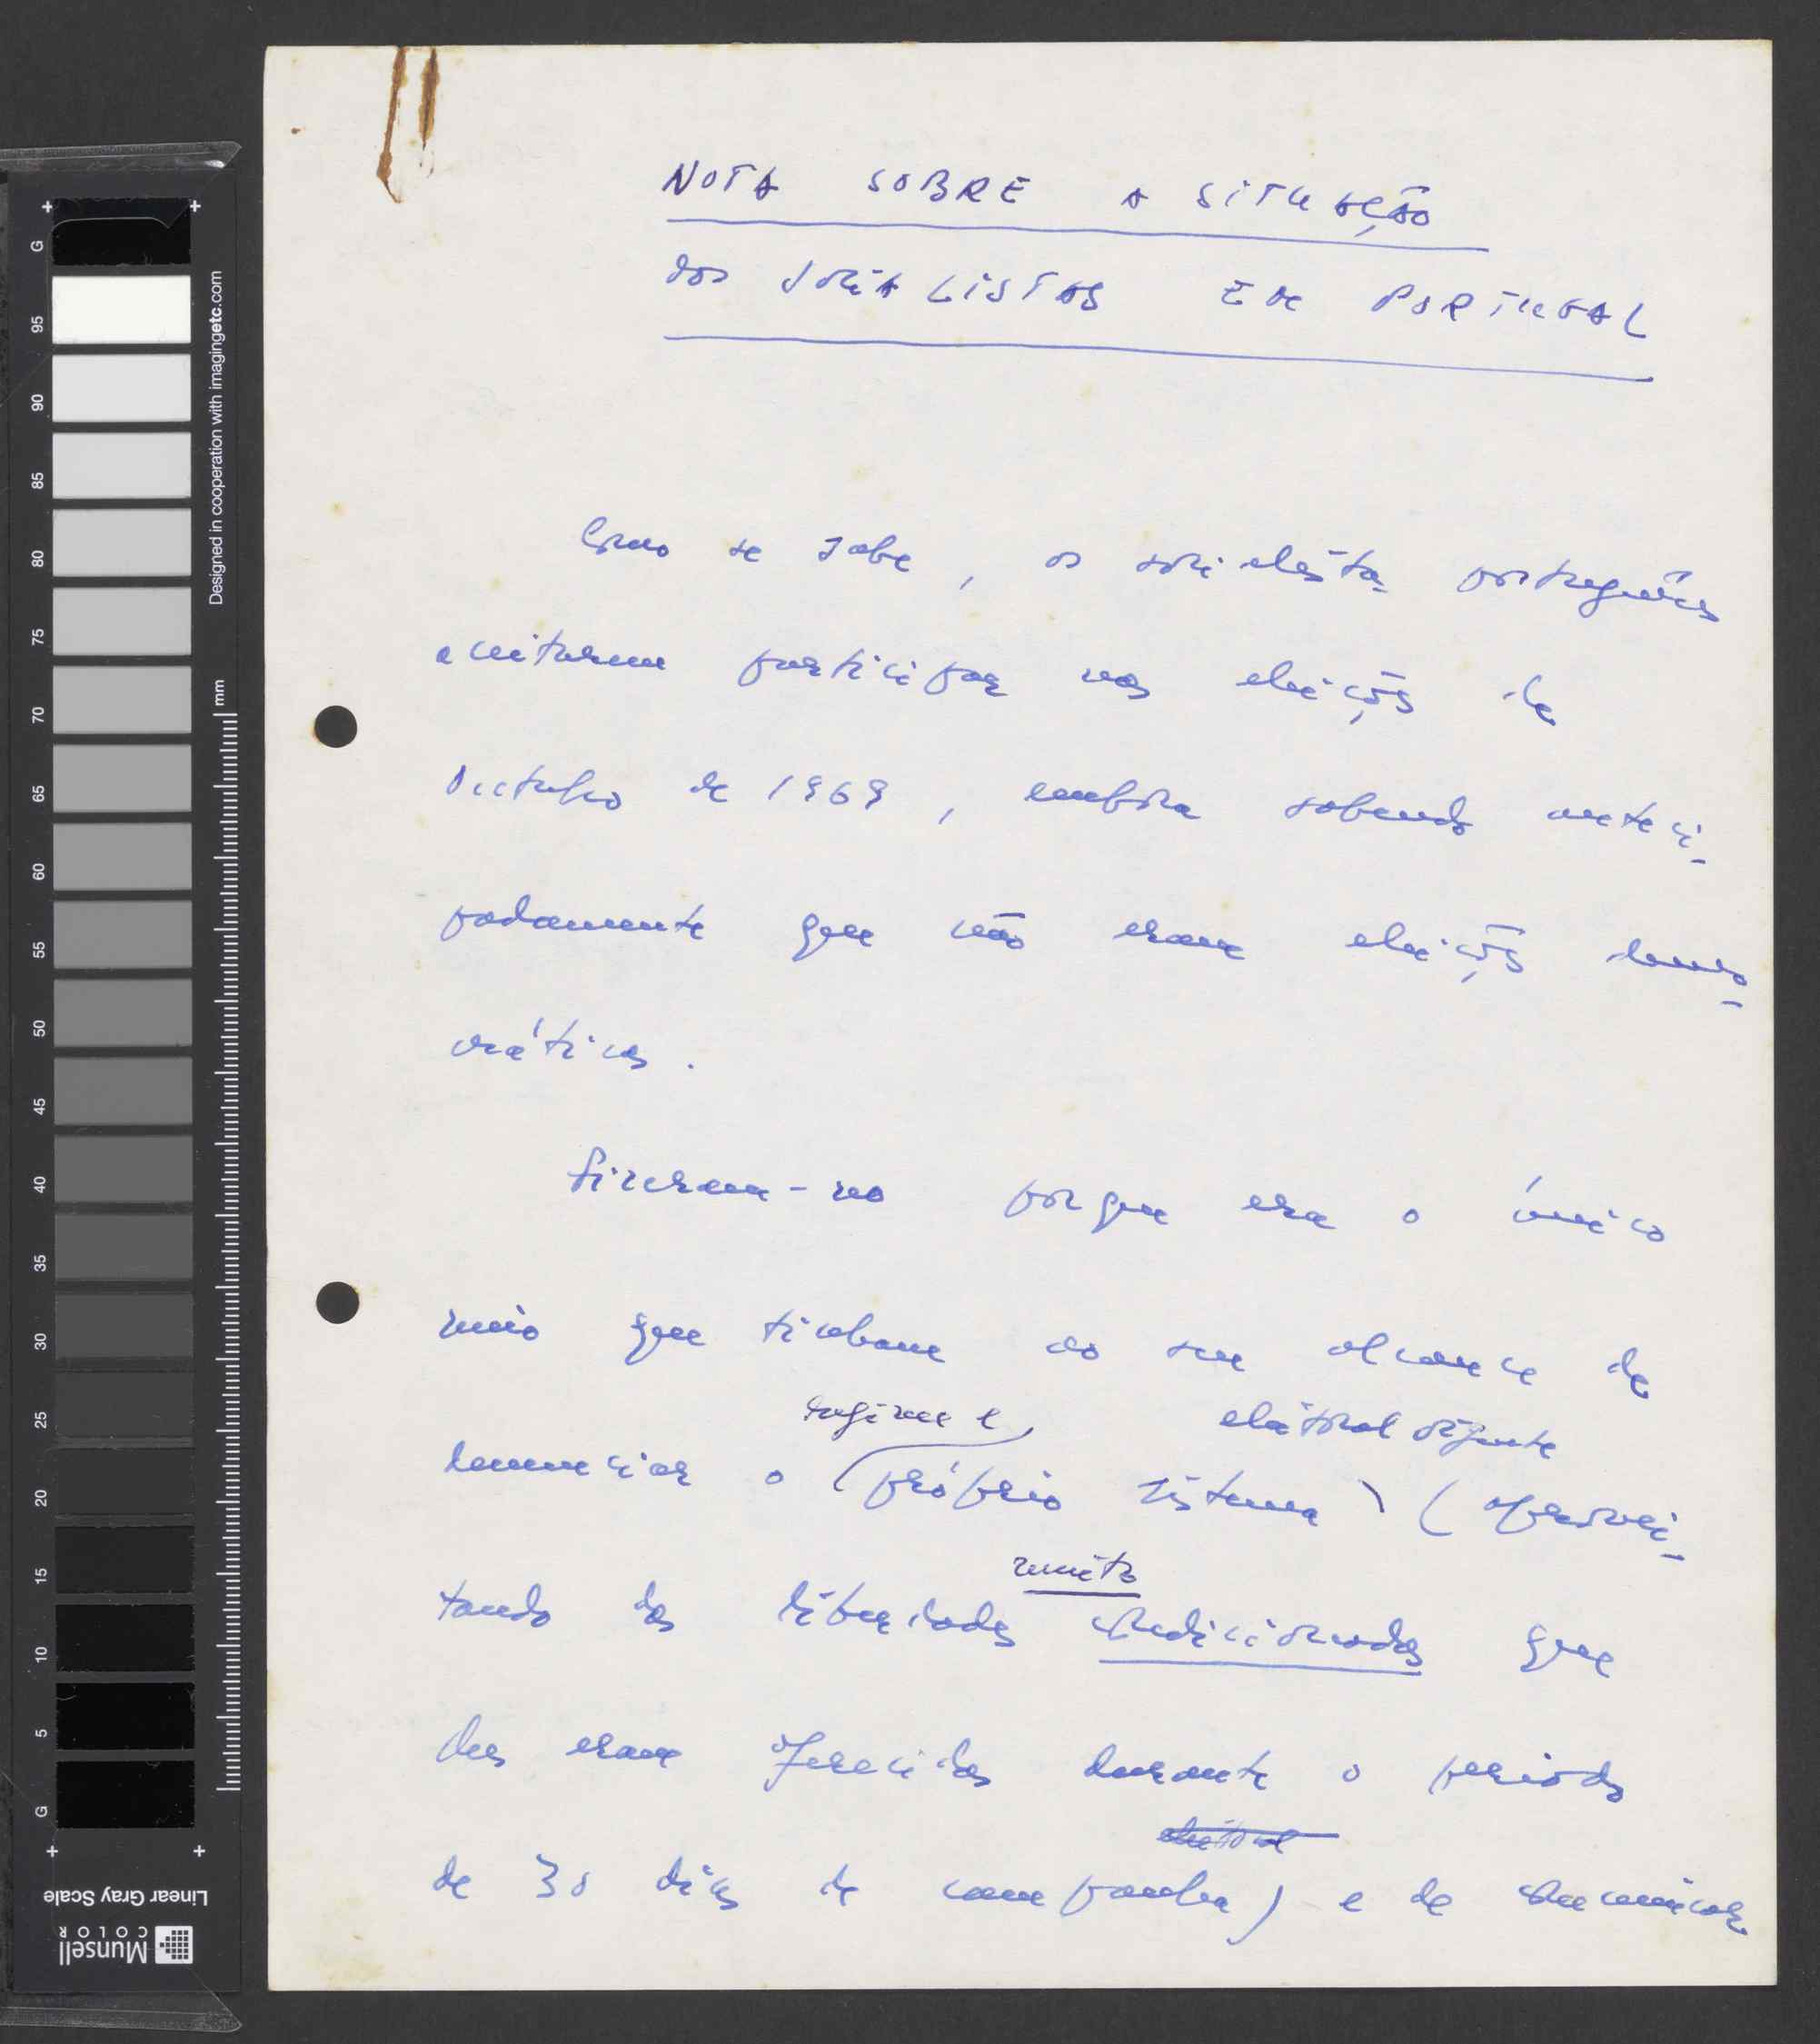 NOTA SOBRE A SITUAÇÃO
DOS SOCIALISTAS EM PORTUGAL
Como se sabe, os socialistas portugueses
aceitaram participar nas eleições de
Outubro de 1969, embora sabendo anteci-
padamente que não eram eleições demo-
cráticas.
Fizeram-no porque era o único
meio que tinham ao seu alcance de
regime e eleitoral vigente
denunciar o próprio sistema (aprovei-
muito
tando as liberdades condicionadas que
lhes eram oferecidas durante o período
eleitoral
de 30 dias de campanha) e de comunicar
G
95
90
85
80
75
70
65
60
55
50
45
40
35
30
25
20
15
10
5
G
Designed in cooperation with imagingetc.com
mm
Linear Gray Scale
Munsell
COLOR